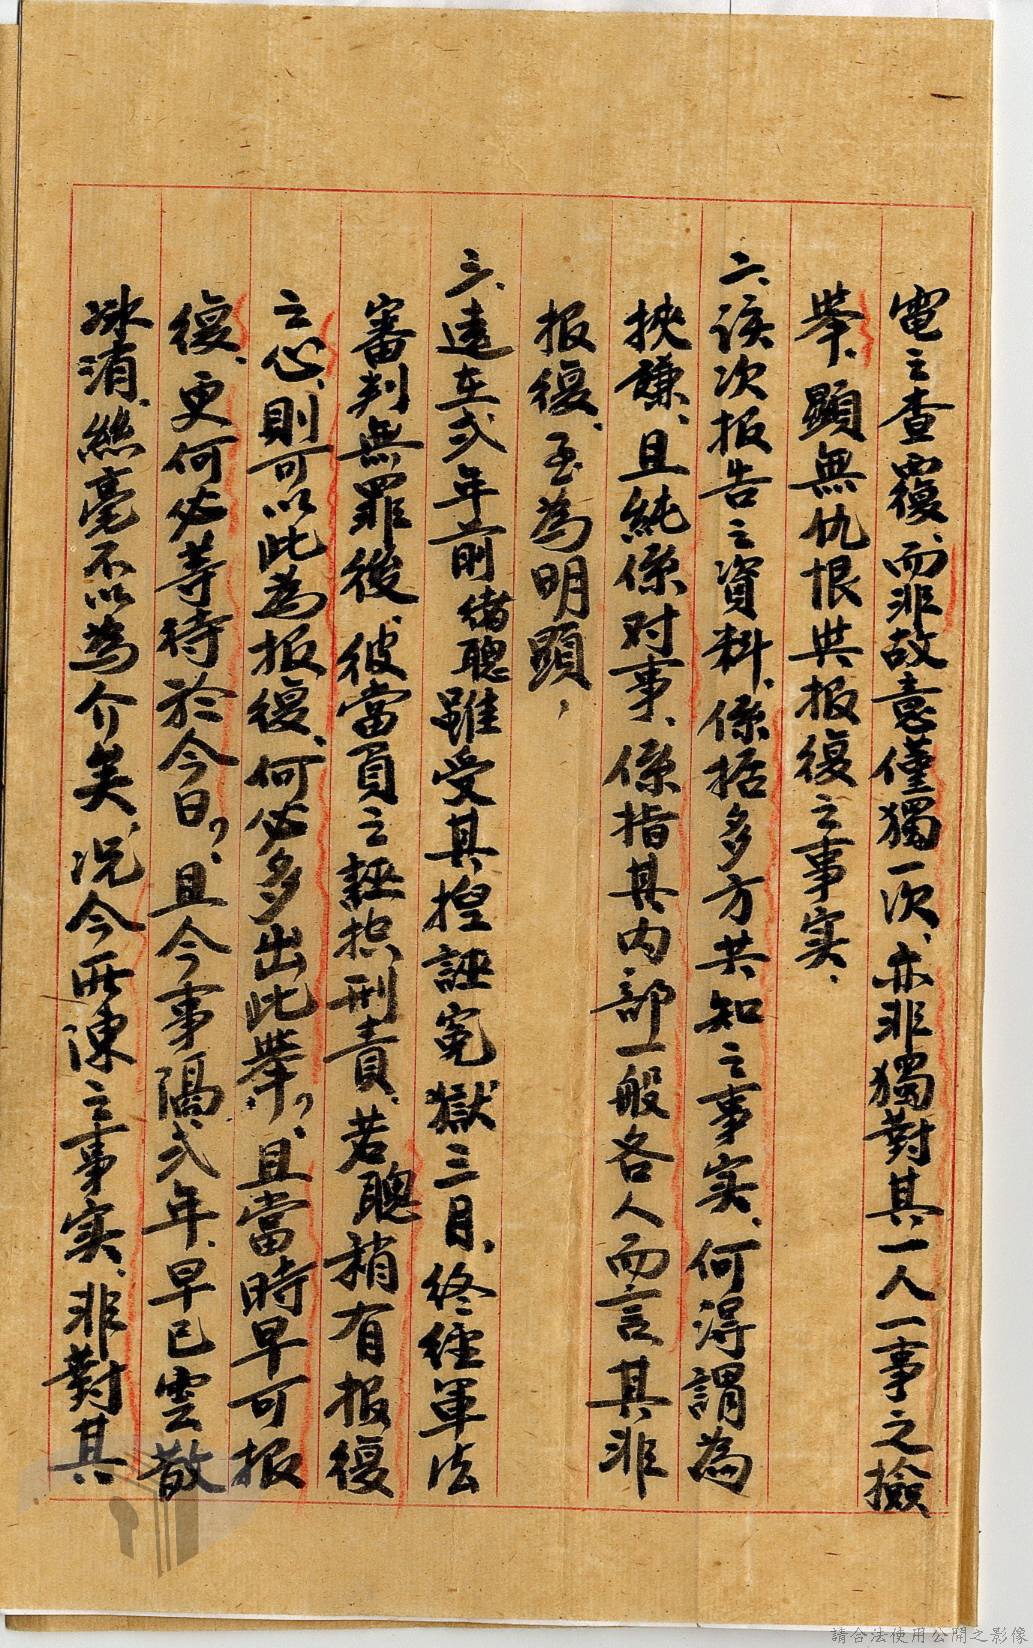 電之查覆、而非故意僅獨一次、亦非獨對其一人一事之撿
举、顯無仇恨與报復之事实、
二、該次报告之資料、係括多方共知之事实、何得謂為
挾謙、且純係对事、係指其内部一般各人而言、其非
报復、至為明顕，
三、遠在弍年前緒聰雖受其揑誣冤獄三月、終經軍法
審判無罪後、彼當負之誣控刑責、若聰稍有报復
之心、則可以此為报復、何必多出此舉，且當時早可报
復、更何必等待於今日，且今事隔弍年、早已雲散
冰消、絲毫不以為介矣、况今所陳之事实、非對其
請合法使用公開之影像